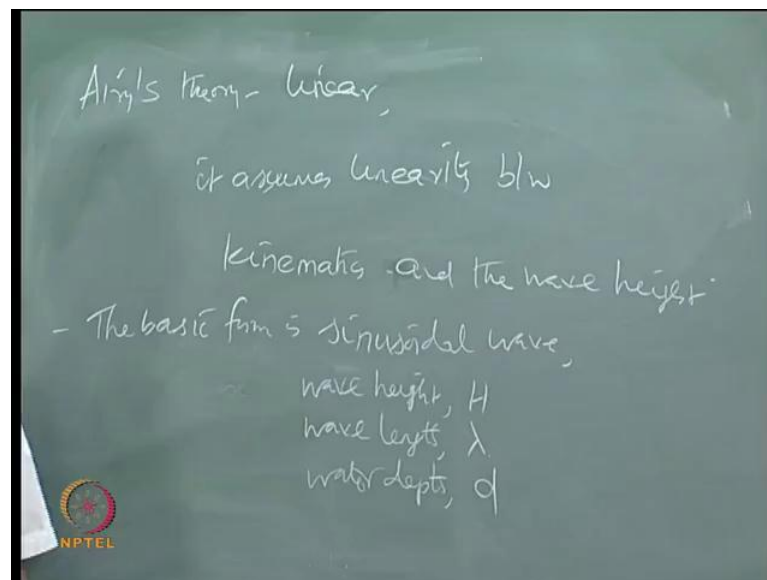 Airy's theory - linear,
it assumes linearity b/w
kinematics and the wave height
- The basic form is sinusoidal wave,
wave height, H
wave length, λ
water depth, d
NPTEL